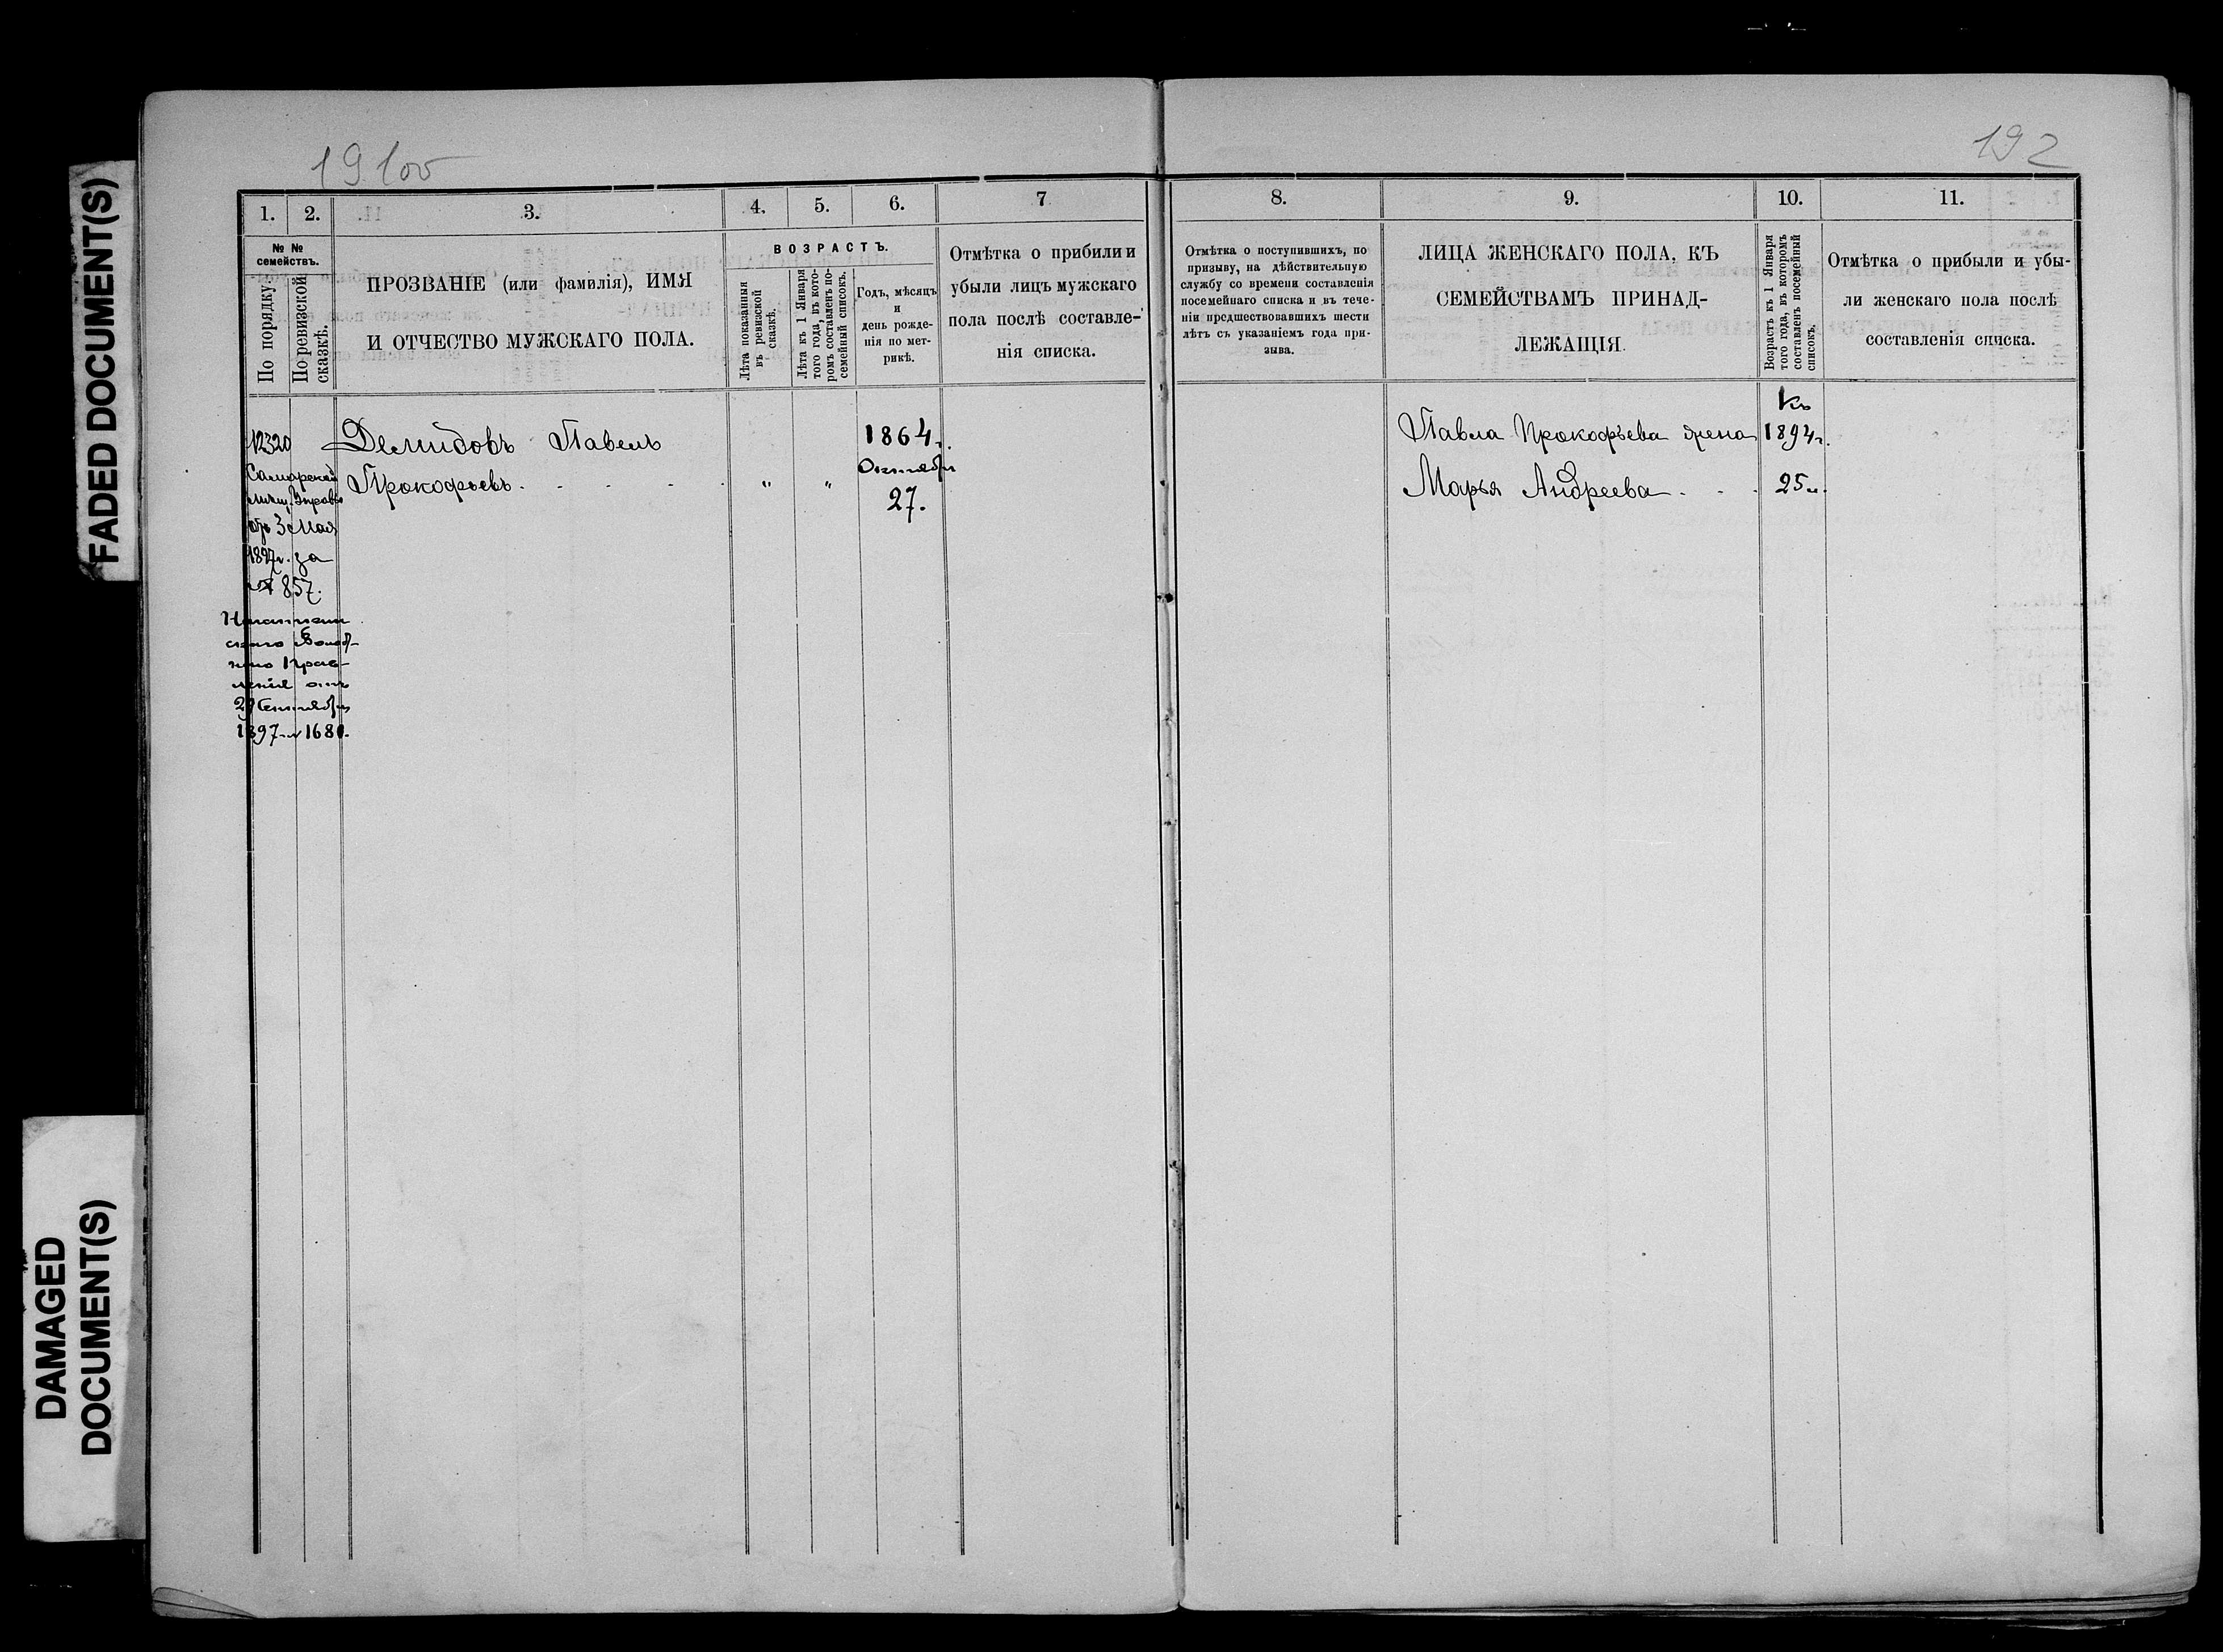 FADED DOCUMENT(S)
DAMAGED
DOCUMENT(S)
19 100
192
1. 2. 3. 4. 5. 6. 7
№ №
семействъ.
По порядку.
По ревизской
сказкѣ.
ПРОЗВАНІЕ (или фамилія), ИМЯ
И ОТЧЕСТВО МУЖСКАГО ПОЛА.
ВОЗРАСТЪ.
Лѣта показанныя
въ ревизской
сказкѣ.
Лѣта къ 1 Января
того года, въ кото-
ромъ составленъ по-
семейный списокъ.
Годъ, мѣсяцъ
и
день рожде-
нія по мет-
рикѣ.
Отмѣтка о прибили и
убыли лицъ мужскаго
пола послѣ составле-
нія списка.
8. 9. 10. 11.
Отмѣтка о поступившихъ, по
призыву, на дѣйствительную
службу со времени составленія
посемейнаго списка и въ тече-
ніи предшествовавшихъ шести
лѣтъ съ указаніемъ года при-
зыва.
ЛИЦА ЖЕНСКАГО ПОЛА, КЪ
СЕМЕЙСТВАМЪ ПРИНАД-
ЛЕЖАЩІЯ.
Возрастъ къ 1 Января
того года, въ которомъ
составленъ посемейный
списокъ.
Отмѣтка о прибыли и убы-
ли женскаго пола послѣ
составленія списка.
12320
Демидовъ Павелъ
Прокофьевъ . . . . " "
1864.
Октября
27.
Самарской
мѣщ. Управы
3 Мая
1897г. за
№ 857.
скаго Волост-
ного Прав-
ленія отъ
Сентября
1897 № 1681.
Павла Прокофьева жена
Марья Андреева . . .
Къ
1894г.
25 л.